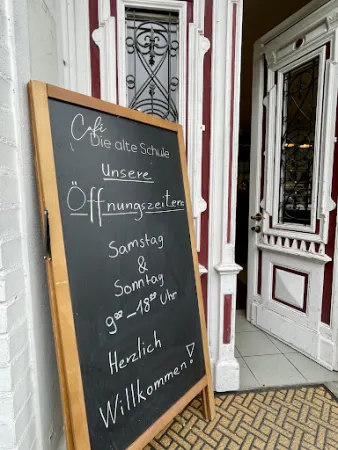 Café
Die alte Schule
Unsere
Öffnungszeiten:
Samstag
&
Sonntag
9⁰⁰-18⁰⁰ Uhr
Herzlich
Willkommen!